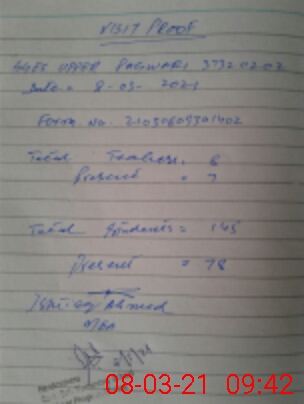 VISIT PROOF
GGPS UPPER PAGWARI 37320202
Date = 8-03-2021
FORM No. 21030809301402
Total Teachers. 8
Present = 7
Total Students = 145
Present = 78
Ishtiaq Ahmed
MEA
08-03-21 09:42